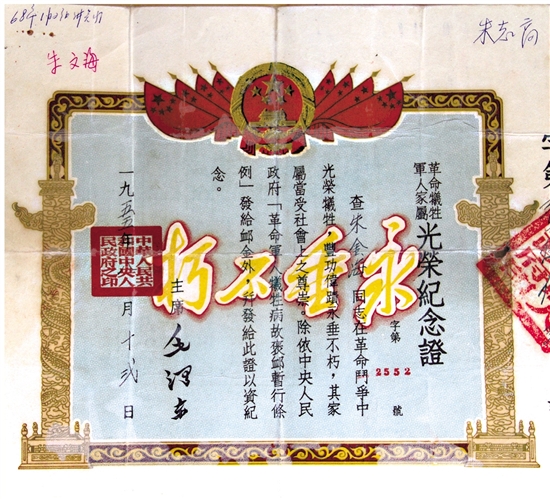 朱志高
朱文海
革命犧牲
軍人家屬
光榮紀念證
字第 2552 號
查朱金 同志在革命鬥爭中
光榮犧牲,豐功偉蹟永垂不朽,其家
屬當受社會上之尊崇。除依中央人民
政府「革命軍人犧牲病故褒卹暫行條
例」發給卹金外,幷發給此證以資紀
念。
永垂不朽
主席 毛澤東
一九五 年 月十弍日
中華人民共
和國中央人
民政府之印